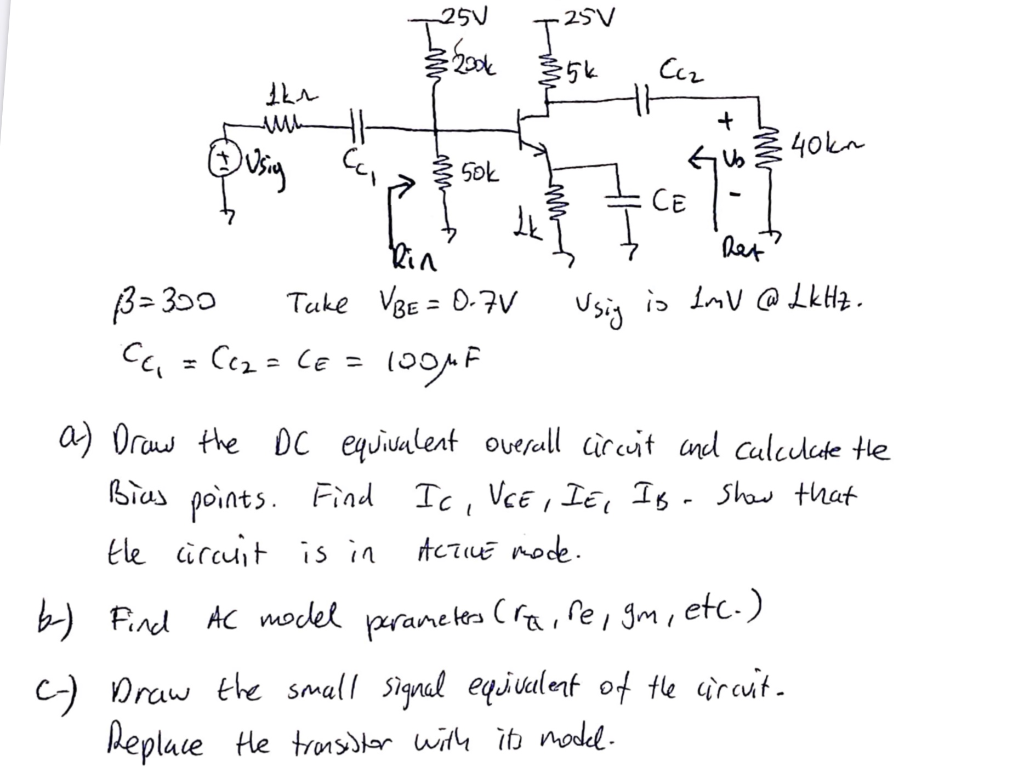 25V 25V
200k 5k CC2
1kΩ
+ Vsig CC1 50k + Vo - 40kΩ
CE
1k
Rin
β=300 Take VBE = 0.7V Vsig is 1mV @ 1kHz.
CC1 = CC2 = CE = 100μF
a-) Draw the DC equivalent overall circuit and calculate the
Bias points. Find IC, VCE, IE, IB. Show that
the circuit is in ACTIVE mode.
b-) Find AC model parameters (rπ, re, gm, etc.)
c-) Draw the small signal equivalent of the circuit.
Replace the transistor with its model.